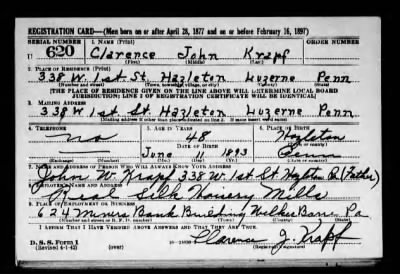 REGISTRATION CARD—(Men born on or after April 28, 1877 and on or before February 16, 1897)
SERIAL NUMBER 1. NAME (Print) ORDER NUMBER
U 620 Clarence John Krapf
(First) (Middle) (Last)
2. PLACE OF RESIDENCE (Print)
338 W. 1st St. Hazleton Luzerne Penn
(Number and street) (Town, township, village, or city) (County) (State)
[THE PLACE OF RESIDENCE GIVEN ON THE LINE ABOVE WILL DETERMINE LOCAL BOARD
JURISDICTION; LINE 2 OF REGISTRATION CERTIFICATE WILL BE IDENTICAL]
3. MAILING ADDRESS
338 W 1st St Hazleton Luzerne Penn
[Mailing address if other than place indicated on line 2. If same insert word same]
4. TELEPHONE 5. AGE IN YEARS 6. PLACE OF BIRTH
no 48 Hazleton
DATE OF BIRTH
June 11 1893 Penn
(Mo.) (Day) (Yr.)
7. NAME AND ADDRESS OF PERSON WHO WILL ALWAYS KNOW YOUR ADDRESS
John W. Krapf 338 W. 1st St Hazleton Pa (Father)
8. EMPLOYER'S NAME AND ADDRESS
Silk Hosiery Mills
9. PLACE OF EMPLOYMENT OR BUSINESS
624 Miners Bank Building Wilkes Barre Pa
I AFFIRM THAT I HAVE VERIFIED ABOVE ANSWERS AND THAT THEY ARE TRUE.
D. S. S. Form 1
(Revised 4-1-42) (over)
Clarence J. Krapf
(Registrant's signature)